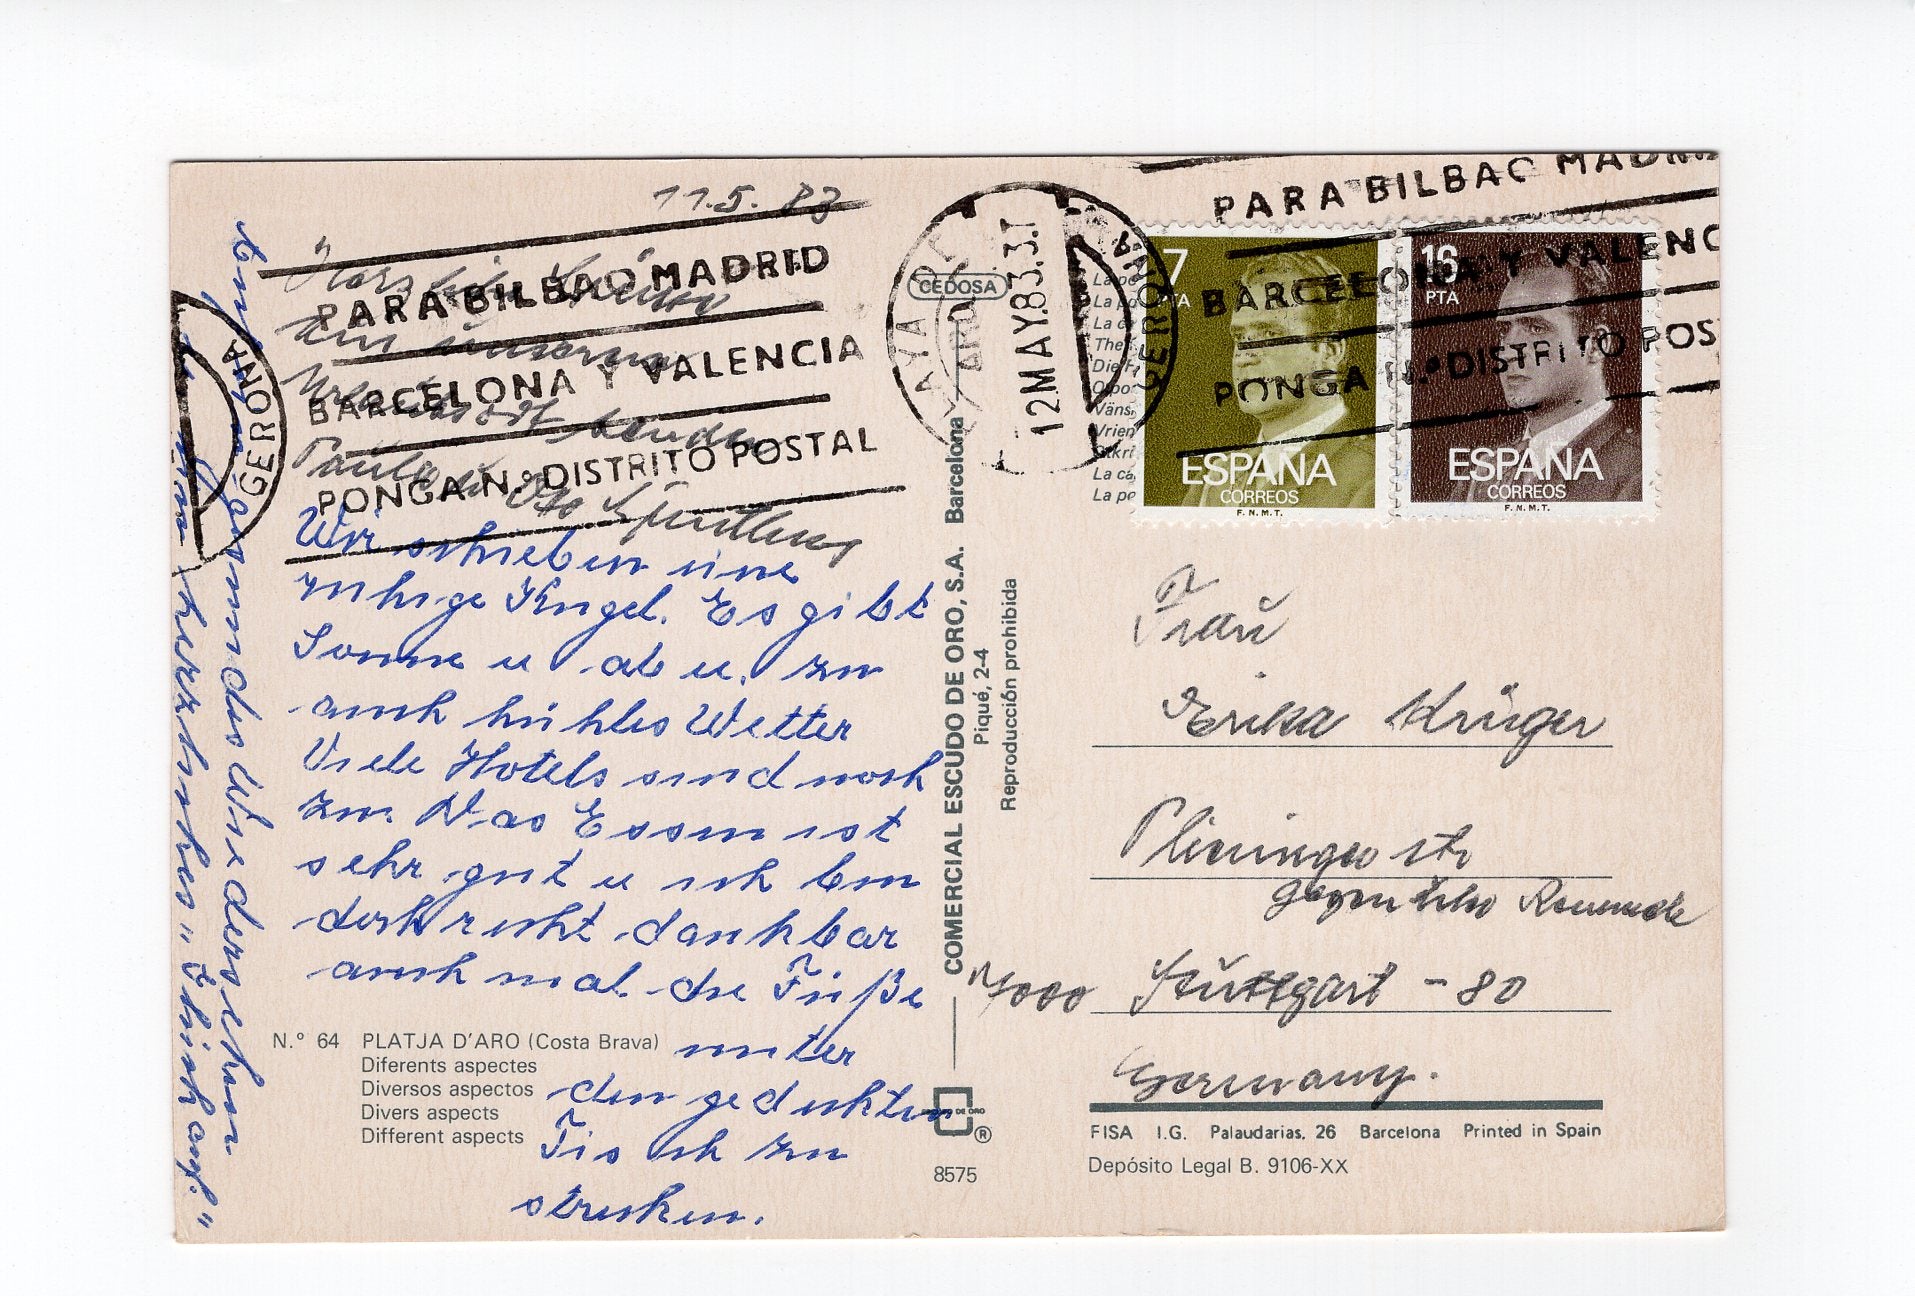 11.5.83
PARA BILBAO MADRID
BARCELONA Y VALENCIA
PONGA N.º DISTRITO POSTAL
GERONA
Herzliche Grüße
Urlaubsort senden
Paula u. Otto
Wir schieben eine
ruhige Kugel. Es gibt
Sonne u ab u. zu
auch kühles Wetter
Viele Hotels sind noch
zu. Das Essen ist
sehr gut u ich bin
doch recht dankbar
auch mal die Füße
unter
den gedeckten
Tisch zu
strecken.
Auf gesundes Wiedersehen
herzliches "Ebinhauf."
N.º 64 PLATJA D'ARO (Costa Brava)
Diferents aspectes
Diversos aspectos
Divers aspects
Different aspects
CEDOSA
COMERCIAL ESCUDO DE ORO, S.A. Barcelona
Piqué, 2-4
Reproducción prohibida
ESCUDO DE ORO
®
8575
PLAYA DE ARO
GERONA
12 MAY.83.3.T
PARA BILBAO MADRID
BARCELONA Y VALENC
PONGA N.º DISTRITO POS
7
PTA
ESPAÑA
CORREOS
F.N.M.T.
16
PTA
ESPAÑA
CORREOS
F.N.M.T.
Frau
Erika Krüger
Plieningerstr
gegenüber
7000 Stuttgart - 80
Germany.
FISA I.G. Palaudarias, 26 Barcelona Printed in Spain
Depósito Legal B. 9106-XX